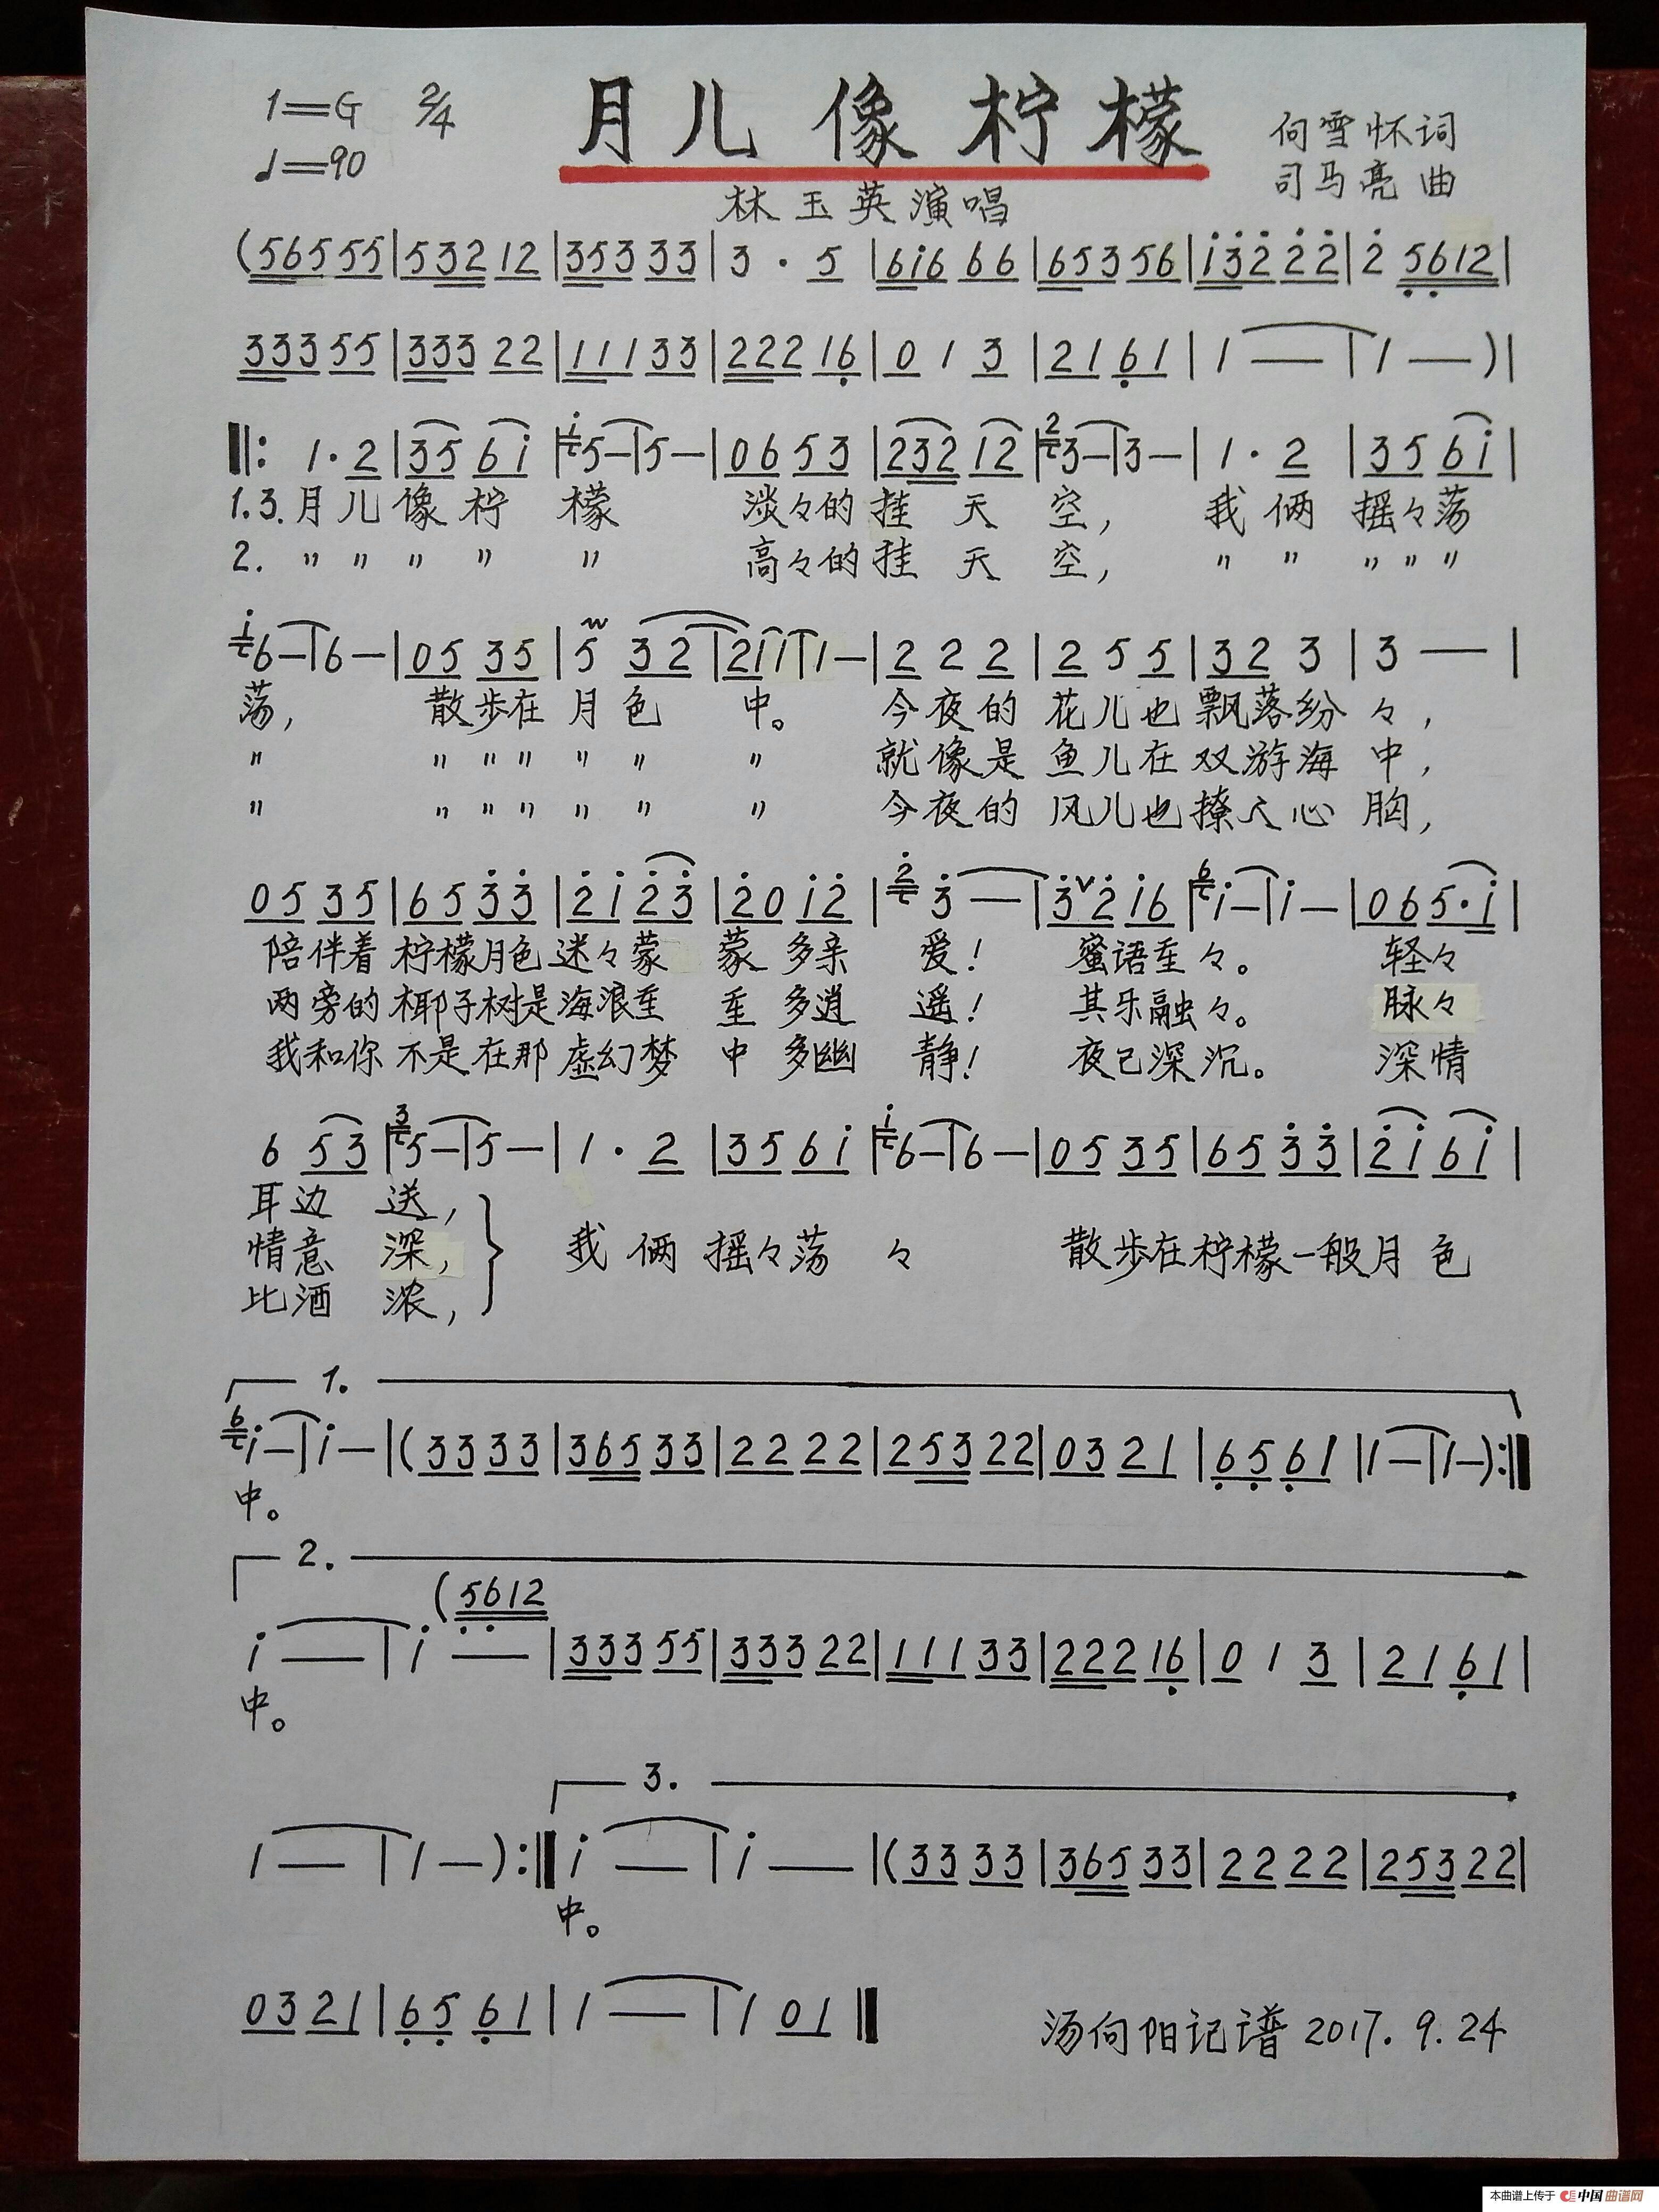 1=G 2/4 月儿像柠檬 何雪怀词
♩=90 司马亮 曲
林玉英演唱
(565 55|532 12|353 33|3 · 5|6i6 66|653 56|i̇3̇2̇ 2̇2̇|2̇ 5612|
333 55|333 22|111 33|222 16|0 1 3|21 61|1 —|1 —)|
‖: 1·2|35 6i|i5—|5—|06 53|232 12|23—|3—|1·2|35 6i|
1.3.月儿像柠檬 淡々的挂天空, 我俩摇々荡
2. 〃 〃 〃 〃 〃 高々的挂天空, 〃 〃 〃 〃 〃
i6—|6—|05 35|5 32|2i1|1—|2 2 2|2 5 5|32 3|3 —|
荡, 散步在月色中。 今夜的花儿也飘落纷々,
〃 〃 〃 〃 〃 〃 〃 就像是鱼儿在双游海中,
〃 〃 〃 〃 〃 〃 〃 今夜的风儿也撩人心胸,
05 35|65 3̇3̇|2̇i 2̇3̇|2̇0 i2̇|2̇3̇ —|3̇ᵛ2̇ i6|6i—|i—|06 5·i|
陪伴着柠檬月色迷々蒙 蒙 多亲 爱! 蜜语重々。 轻々
两旁的椰子树是海浪重 重 多逍 遥! 其乐融々。 脉々
我和你不是在那虚幻梦 中 多幽 静! 夜已深沉。 深情
6 53|35—|5—|1·2|35 6i|i6—|6—|05 35|65 3̇3̇|2̇i 6i|
耳边 送,
情意 深, 我俩摇々荡々 散步在柠檬一般月色
比酒 浓,
1.
6i—|i—|(33 33|365 33|22 22|253 22|03 21|65 61|1—|1—):‖
中。
2.
(5612
i —|i —|333 55|333 22|111 33|222 16|0 1 3|21 61|
中。
3.
1 —|1 —):‖i —|i —|(33 33|365 33|22 22|253 22|
中。
03 21|65 61|1 —|1 01‖
汤向阳记谱 2017.9.24
本曲谱上传于 中国曲谱网